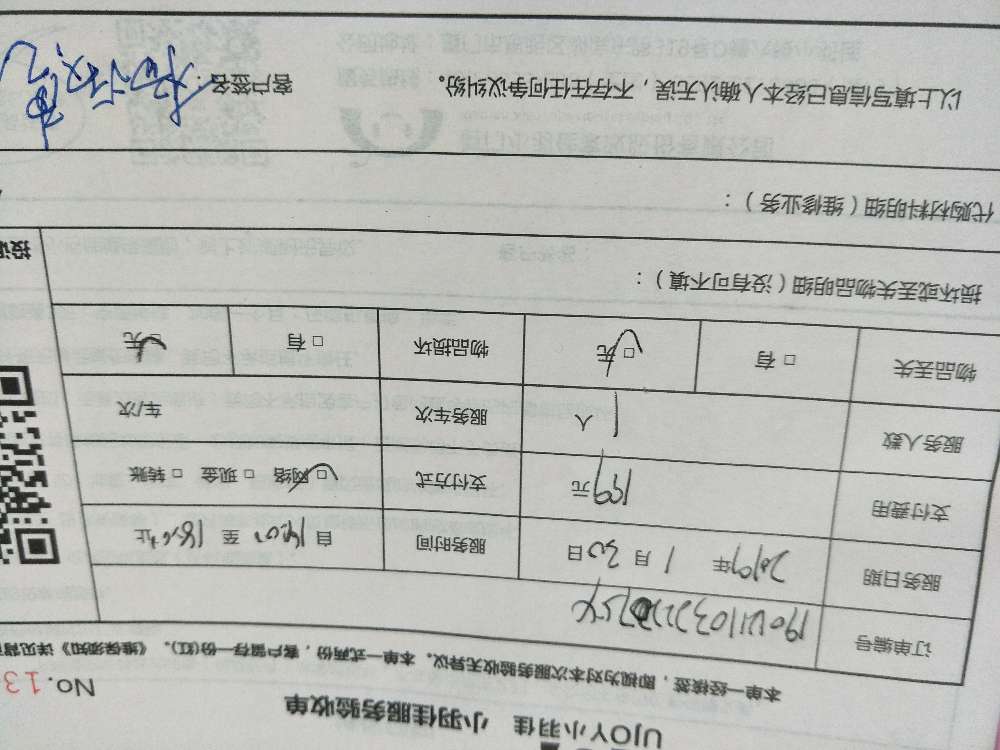 UJOY小羽佳 小羽佳服务验收单
No.13
本单一经核签，即视为对本次服务验收无异议。本单一式两份，客户留存一份(红)。《维保须知》详见背
订单编号
服务日期 2019年 1月30日 服务时间 自14:00至18:00止
支付费用 199元 支付方式 □网络 □现金 □转账
服务人数 1人 服务车次 车/次
物品丢失 □有 □无 物品损坏 □有 □无
损坏或丢失物品明细（没有可不填）：
投诉
代购材料明细（维修业务）：
以上填写信息已经本人确认无误，不存在任何争议纠纷。 客户签名：